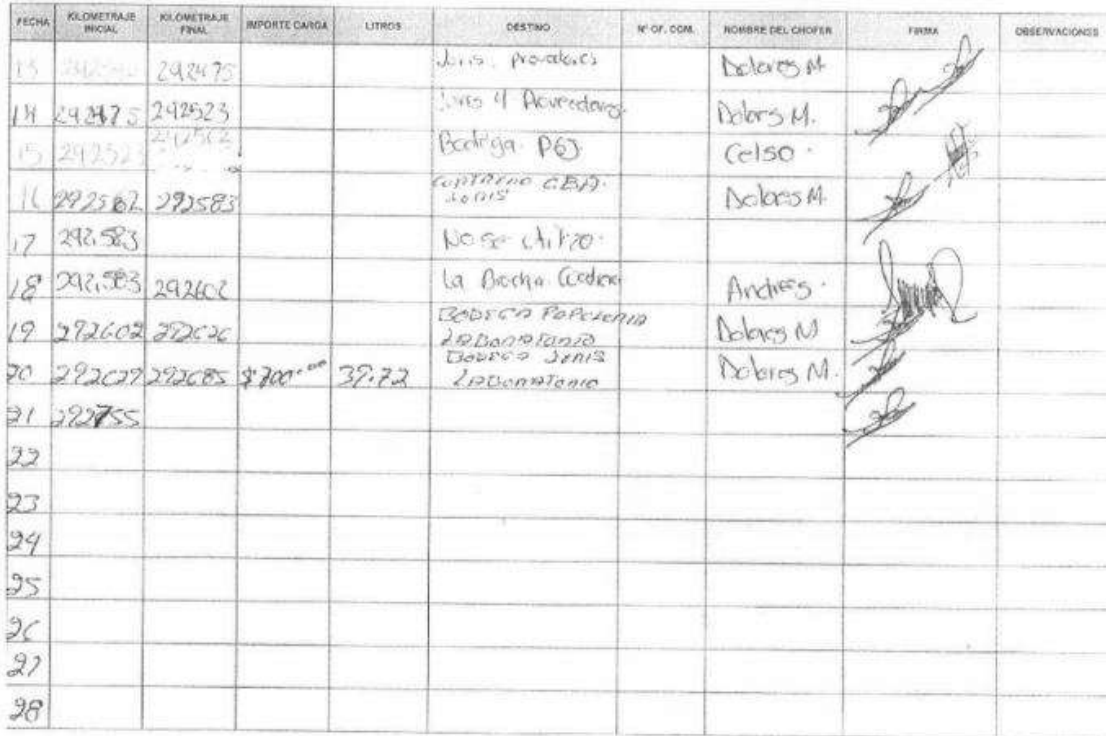 FECHA KILOMETRAJE INICIAL KILOMETRAJE FINAL IMPORTE CARGA LITROS DESTINO N° OF. COM. NOMBRE DEL CHOFER FIRMA OBSERVACIONES
13 292475 Juris. Dolores M
14 292475 292523 Juris y Proveedores Dolores M.
15 292523 292562 Bodega P63 Celso.
16 292562 292583 Juris Dolores M.
17 292,583 No se utilizo.
18 292,583 292602 La Brocha Andres.
19 292602 292626 BODEGA PAPELERIA
LABORATORIO Dolores M
20 292627 292685 $700.00 39.72 BODEGA JURIS
LABORATORIO Dolores M.
21 292755
22
23
24
25
26
27
28